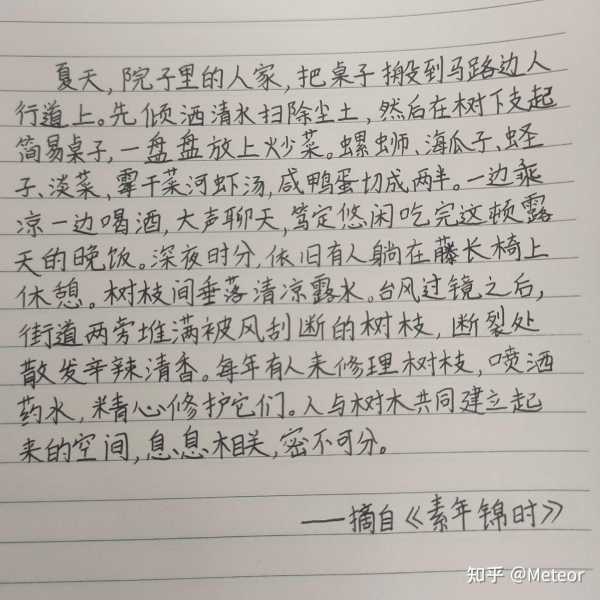 夏天，院子里的人家，把桌子搬到马路边人
行道上。先倾洒清水扫除尘土，然后在树下支起
简易桌子，一盘盘放上炒菜。螺蛳、海瓜子、蛏
子、淡菜，霉干菜河虾汤，咸鸭蛋切成两半。一边乘
凉一边喝酒，大声聊天，笃定悠闲吃完这顿露
天的晚饭。深夜时分，依旧有人躺在藤长椅上
休憩。树枝间垂落清凉露水。台风过镜之后，
街道两旁堆满被风刮断的树枝，断裂处
散发辛辣清香。每年有人来修理树枝，喷洒
药水，精心修护它们。人与树木共同建立起
来的空间，息息相关，密不可分。
——摘自《素年锦时》
知乎 @Meteor